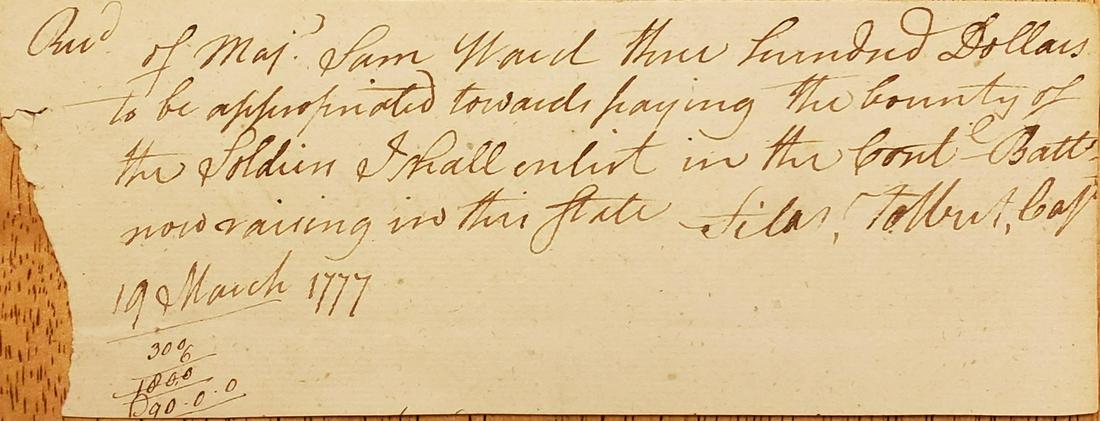 Recd of Majr Sam Ward three hundred Dollars
to be appropriated towards paying the bounty of
the Soldiers I shall enlist in the Contl Batt
now raising in this State Silas Talbut, Capt
19 March 1777
300
6
1800
£90.0.0